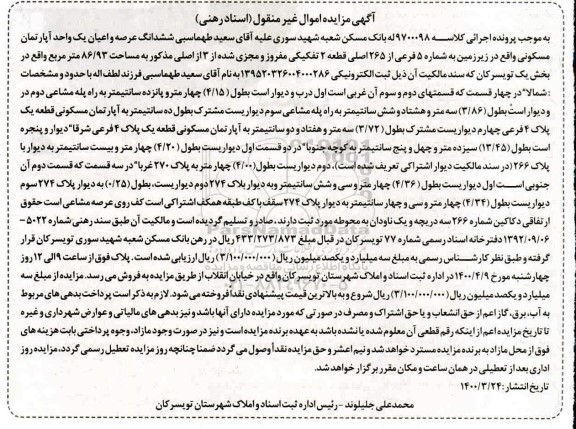 آگهی مزایده اموال غیر منقول (اسناد رهنی)
به موجب پرونده اجرائی کلاسه ۹۷۰۰۰۹۸ له بانک مسکن شعبه شهید سوری علیه آقای سعید طهماسبی ششدانگ عرصه و اعیان یک واحد آپارتمان
مسکونی واقع در زیرزمین به شماره ۵ فرعی از ۲۶۵ اصلی قطعه ۲ تفکیکی مفروز و مجزی شده از ۳ از اصلی مذکور به مساحت ۸۶/۹۳ متر مربع واقع در
بخش یک تویسرکان که سند مالکیت آن ذیل ثبت الکترونیکی ۱۳۹۵۲۰۳۲۶۰۰۴۰۰۰۲۸۶ به نام آقای سعید طهماسبی فرزند لطف اله با حدود و مشخصات
: شمالا" در چهار قسمت که قسمتهای دوم و سوم آن غربی است اول درب و دیوار است بطول (۴/۱۵) چهار متر و پانزده سانتیمتر به راه پله مشاعی دوم در
و دیوار است بطول (۳/۸۶) سه متر و هشتاد و شش سانتیمتر به راه پله مشاعی سوم دیواریست مشترک بطول ده سانتیمتر به آپارتمان مسکونی قطعه یک
پلاک ۴ فرعی چهارم دیواریست مشترک بطول (۳/۷۲) سه متر و هفتاد و دو سانتیمتر به آپارتمان مسکونی قطعه یک پلاک ۴ فرعی شرقا" دیوار و پنجره
است بطول (۱۳/۴۵) سیزده متر و چهل و پنج سانتیمتر به کوچه جنوبا" در دو قسمت اول دیواریست بطول (۴/۲۰) چهار متر و بیست سانتیمتر به دیوار
پلاک ۲۶۶ (در سند مالکیت دیوار اشتراکی تعریف شده است)، دوم دیواریست بطول (۴/۰۰) چهار متر به پلاک ۲۷۰ غربا" در سه قسمت که قسمت دوم آن
جنوبی است اول دیواریست بطول (۴/۳۶) چهار متر و سی و شش سانتیمتر و به دیوار پلاک ۲۷۴ دوم دیواریست، بطول (۰/۲۵) به دیوار پلاک ۲۷۴ سوم
دیواریست بطول (۴/۳۴) چهار متر و سی و چهار سانتیمتر به دیوار پلاک ۲۷۴ سقف با کف طبقه همکف اشتراکی است کف روی عرصه مشاعی است حقوق
ارتفاقی دکاکین شماره ۲۶۶ سه دریچه و یک ناودان به محوطه مورد ثبت دارند، صادر و تسلیم گردیده است و مالکیت آن طبق سند رهنی شماره ۵۰۲۲ -
۱۳۹۲/۰۹/۰۶ دفترخانه اسناد رسمی شماره ۷۷ تویسرکان در قبال مبلغ ۴۳۳/۲۷۳/۸۷۳ ریال در رهن بانک مسکن شعبه شهید سوری تویسرکان قرار
گرفته و طبق نظر کارشناس رسمی به مبلغ سه میلیارد و یکصد میلیون ریال (۳/۱۰۰/۰۰۰/۰۰۰) ریال ارزیابی شده است. پلاک فوق از ساعت ۹ الی ۱۲ روز
چهارشنبه مورخ ۱۴۰۰/۴/۹ در اداره ثبت اسناد و املاک شهرستان تویسرکان واقع در خیابان انقلاب از طریق مزایده به فروش می رسد. مزایده از مبلغ سه
میلیارد و یکصد میلیون ریال (۳/۱۰۰/۰۰۰/۰۰۰) ریال شروع و به بالاترین قیمت پیشنهادی نقدا فروخته می شود. لازم به ذکر است پرداخت بدهی های مربوط
به آب، برق، گاز اعم از حق انشعاب و یا حق اشتراک و مصرف در صورتی که مورد مزایده دارای آنها باشد و نیز بدهی های مالیاتی و عوارض شهرداری و غیره
تا تاریخ مزایده اعم از اینکه رقم قطعی آن معلوم شده یا نشده باشد به عهده برنده مزایده است و نیز در صورت وجود مازاد، وجوه پرداختی بابت هزینه های
فوق از محل مازاد به برنده مزایده مسترد خواهد شد و نیم اعشر و حق مزایده نقدا وصول می گردد ضمنا چنانچه روز مزایده تعطیل رسمی گردد، مزایده روز
اداری بعد از تعطیلی در همان ساعت و مکان مقرر برگزار خواهد شد.
تاریخ انتشار: ۱۴۰۰/۳/۲۴
محمدعلی جلیلوند - رئیس اداره ثبت اسناد و املاک شهرستان تویسرکان